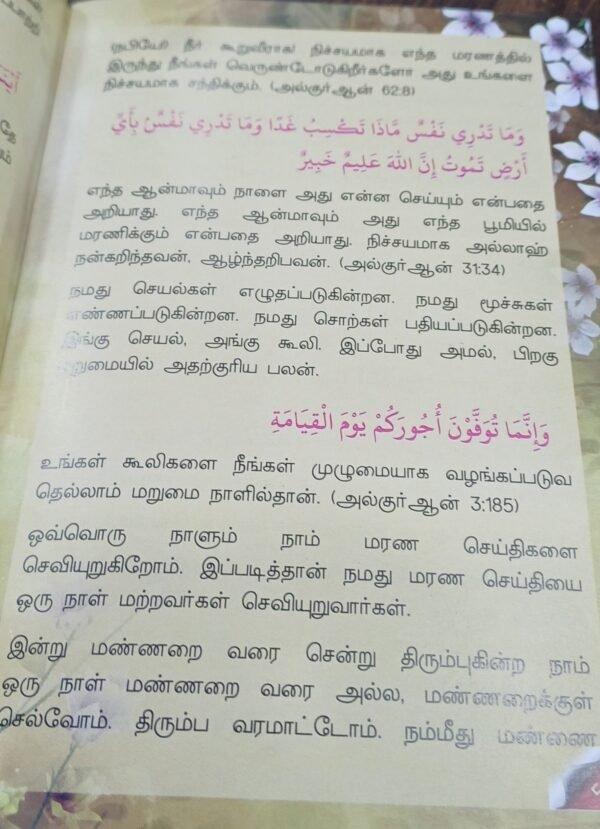 (நபியே!) நீர் கூறுவீராக! நிச்சயமாக எந்த மரணத்தில்
இருந்து நீங்கள் வெருண்டோடுகிறீர்களோ அது உங்களை
நிச்சயமாக சந்திக்கும். (அல்குர்ஆன் 62:8)
وَمَا تَدْرِي نَفْسٌ مَّاذَا تَكْسِبُ غَدًا وَمَا تَدْرِي نَفْسٌ بِأَيِّ
أَرْضٍ تَمُوتُ إِنَّ اللهَ عَلِيمٌ خَبِيرٌ
எந்த ஆன்மாவும் நாளை அது என்ன செய்யும் என்பதை
அறியாது. எந்த ஆன்மாவும் அது எந்த பூமியில்
மரணிக்கும் என்பதை அறியாது. நிச்சயமாக அல்லாஹ்
நன்கறிந்தவன், ஆழ்ந்தறிபவன். (அல்குர்ஆன் 31:34)
நமது செயல்கள் எழுதப்படுகின்றன. நமது மூச்சுகள்
எண்ணப்படுகின்றன. நமது சொற்கள் பதியப்படுகின்றன.
இங்கு செயல், அங்கு கூலி. இப்போது அமல், பிறகு
மறுமையில் அதற்குரிய பலன்.
وَإِنَّمَا تُوَفَّوْنَ أُجُورَكُمْ يَوْمَ الْقِيَامَةِ
உங்கள் கூலிகளை நீங்கள் முழுமையாக வழங்கப்படுவ
தெல்லாம் மறுமை நாளில்தான். (அல்குர்ஆன் 3:185)
ஒவ்வொரு நாளும் நாம் மரண செய்திகளை
செவியுறுகிறோம். இப்படித்தான் நமது மரண செய்தியை
ஒரு நாள் மற்றவர்கள் செவியுறுவார்கள்.
இன்று மண்ணறை வரை சென்று திரும்புகின்ற நாம்
ஒரு நாள் மண்ணறை வரை அல்ல, மண்ணறைக்குள்
செல்வோம். திரும்ப வரமாட்டோம். நம்மீது மண்ணை